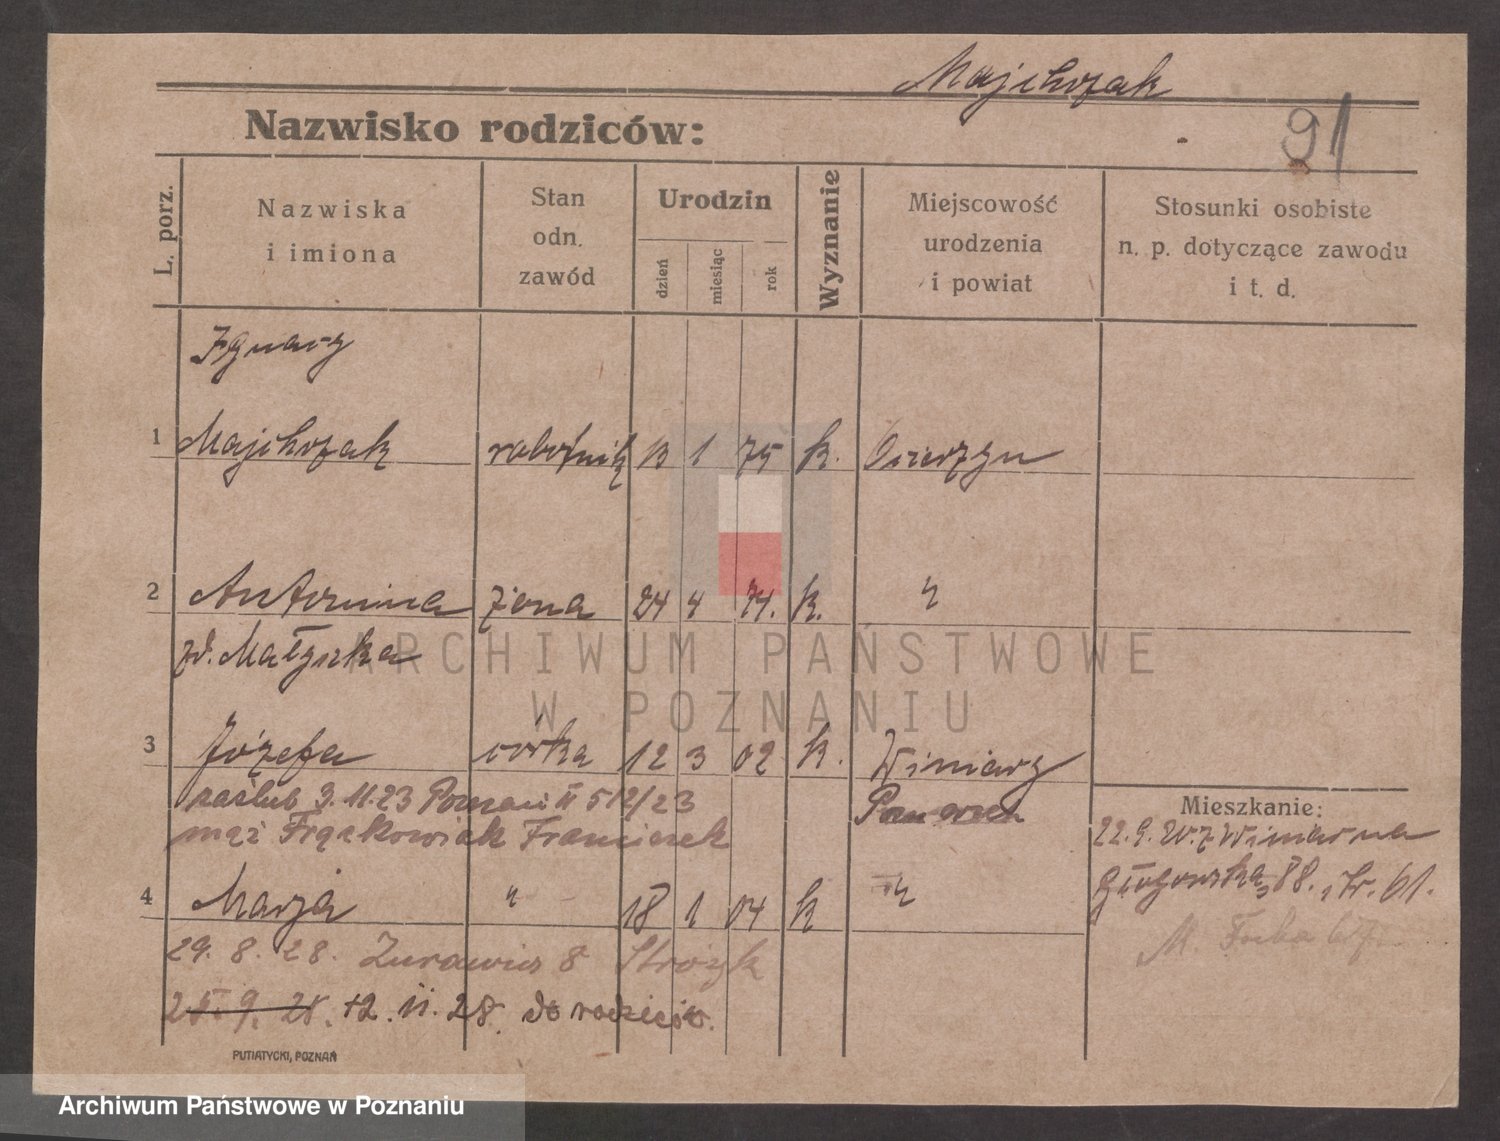 Majchrzak
91
Nazwisko rodziców:
L. porz.
Nazwiska
i imiona
Stan
odn.
zawód
Urodzin
dzień
miesiąc
rok
Wyznanie
Miejscowość
urodzenia
i powiat
Stosunki osobiste
n. p. dotyczące zawodu
i t. d.
Ignacy
1 Majchrzak robotnik 13 1 75 k.
2 Antonina żona 24 4 74. k. "
zd. Małycka
3 Józefa córka 12 3 02 k. Winiary
zaślub 3.11.23 Poznań II 512/23
mąż Frąckowiak Franciszek
Mieszkanie:
22.9. z Winiar na
Głogowska 88. tr. 61.
4 Marja " 18 1 04 k "
29. 8. 28. Żurawia 8 Stróżyk
25. 9. 28. 12. 11. 28. do rodziców.
PUTIATYCKI, POZNAŃ
ARCHIWUM PAŃSTWOWE
W POZNANIU
Archiwum Państwowe w Poznaniu